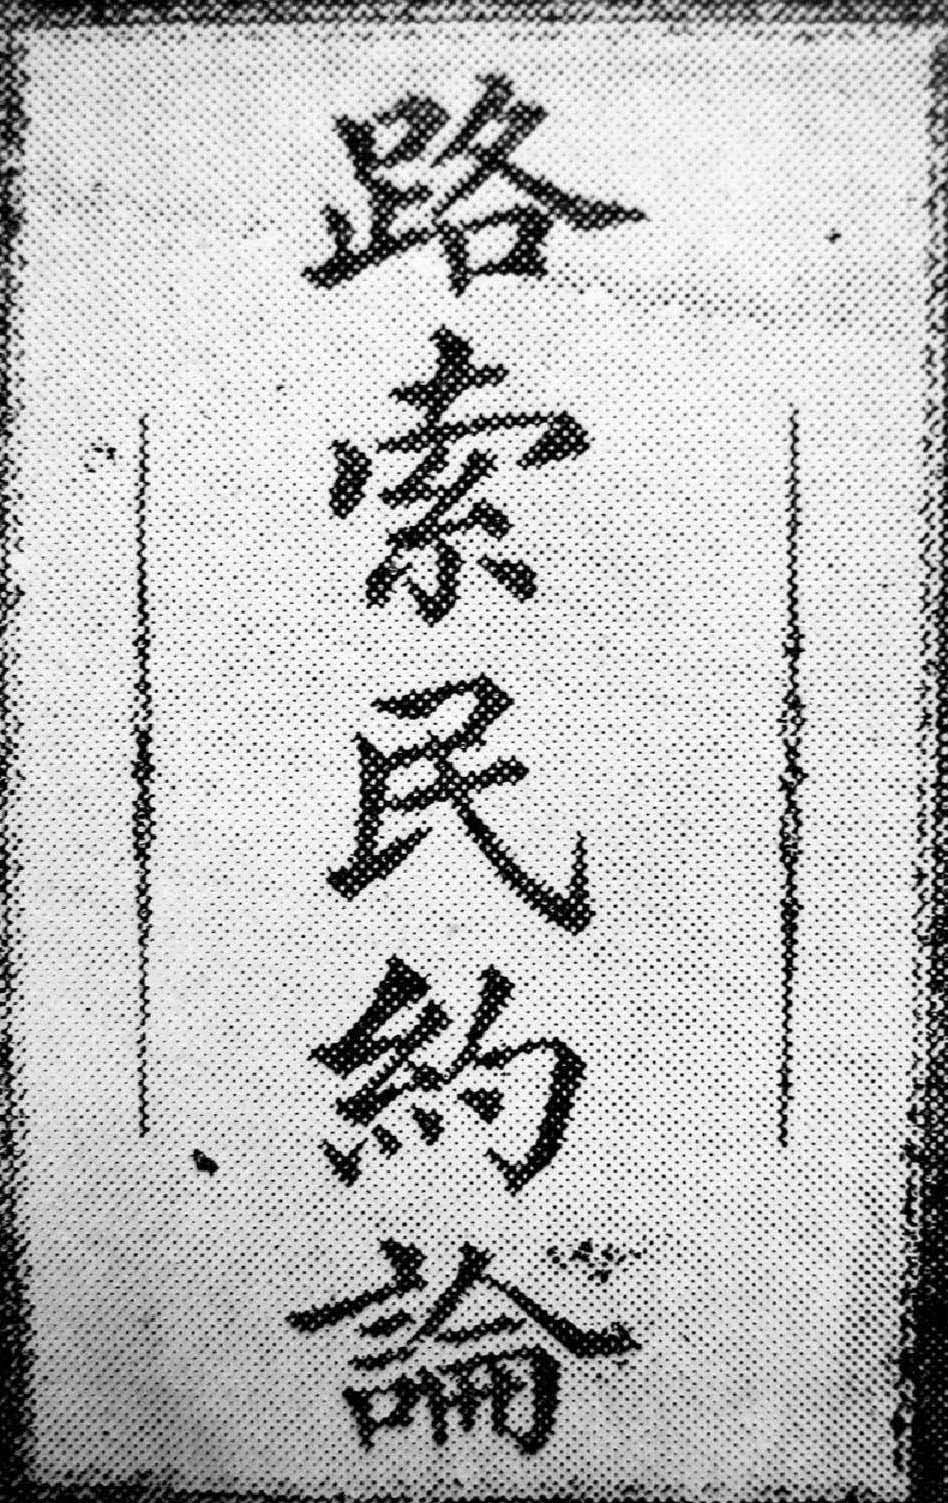 路索民約論